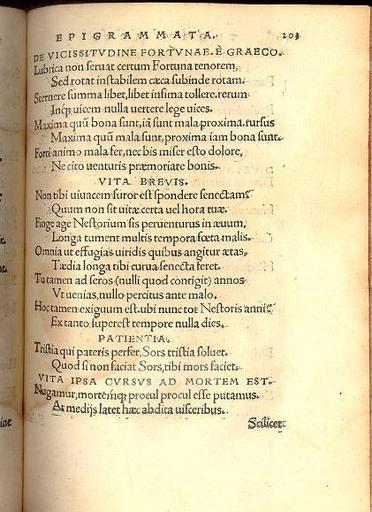 EPIGRAMMATA. 203
DE VICISSITVDINE FORTVNAE. È GRAECO.
Lubrica non seruat certum Fortuna tenorem,
Sed rotat instabilem cæca subinde rotam.
Sternere summa libet, libet infima tollere. rerum
Inq; uicem nulla uertere lege uices.
Maxima quũ bona sunt, iã sunt mala proxima. rursus
Maxima quũ mala sunt, proxima iam bona sunt.
Forti animo mala fer, nec bis miser esto dolore,
Ne cito uenturis præmoriare bonis.
VITA BREVIS.
Non tibi uiuacem furor est spondere senectam?
Quum non sit uitæ certa uel hora tuæ.
Finge age Nestorium sis peruenturus in æuum,
Longa tument multis tempora fœta malis.
Omnia ut effugias uiridis quibus angitur ætas,
Tædia longa tibi curua senecta feret.
Tu tamen ad seros (nulli quod contigit) annos
Vt uenias, nullo percitus ante malo.
Hoc tamen exiguum est. ubi nunc tot Nestoris anni?
Ex tanto superest tempore nulla dies.
PATIENTIA.
Tristia qui pateris perfer, Sors tristia soluet.
Quod si non faciat Sors, tibi mors faciet.
VITA IPSA CVRSVS AD MORTEM EST.
Nugamur, mortemq; procul procul esse putamus.
At medijs latet hæc abdita uisceribus.
Scilicet